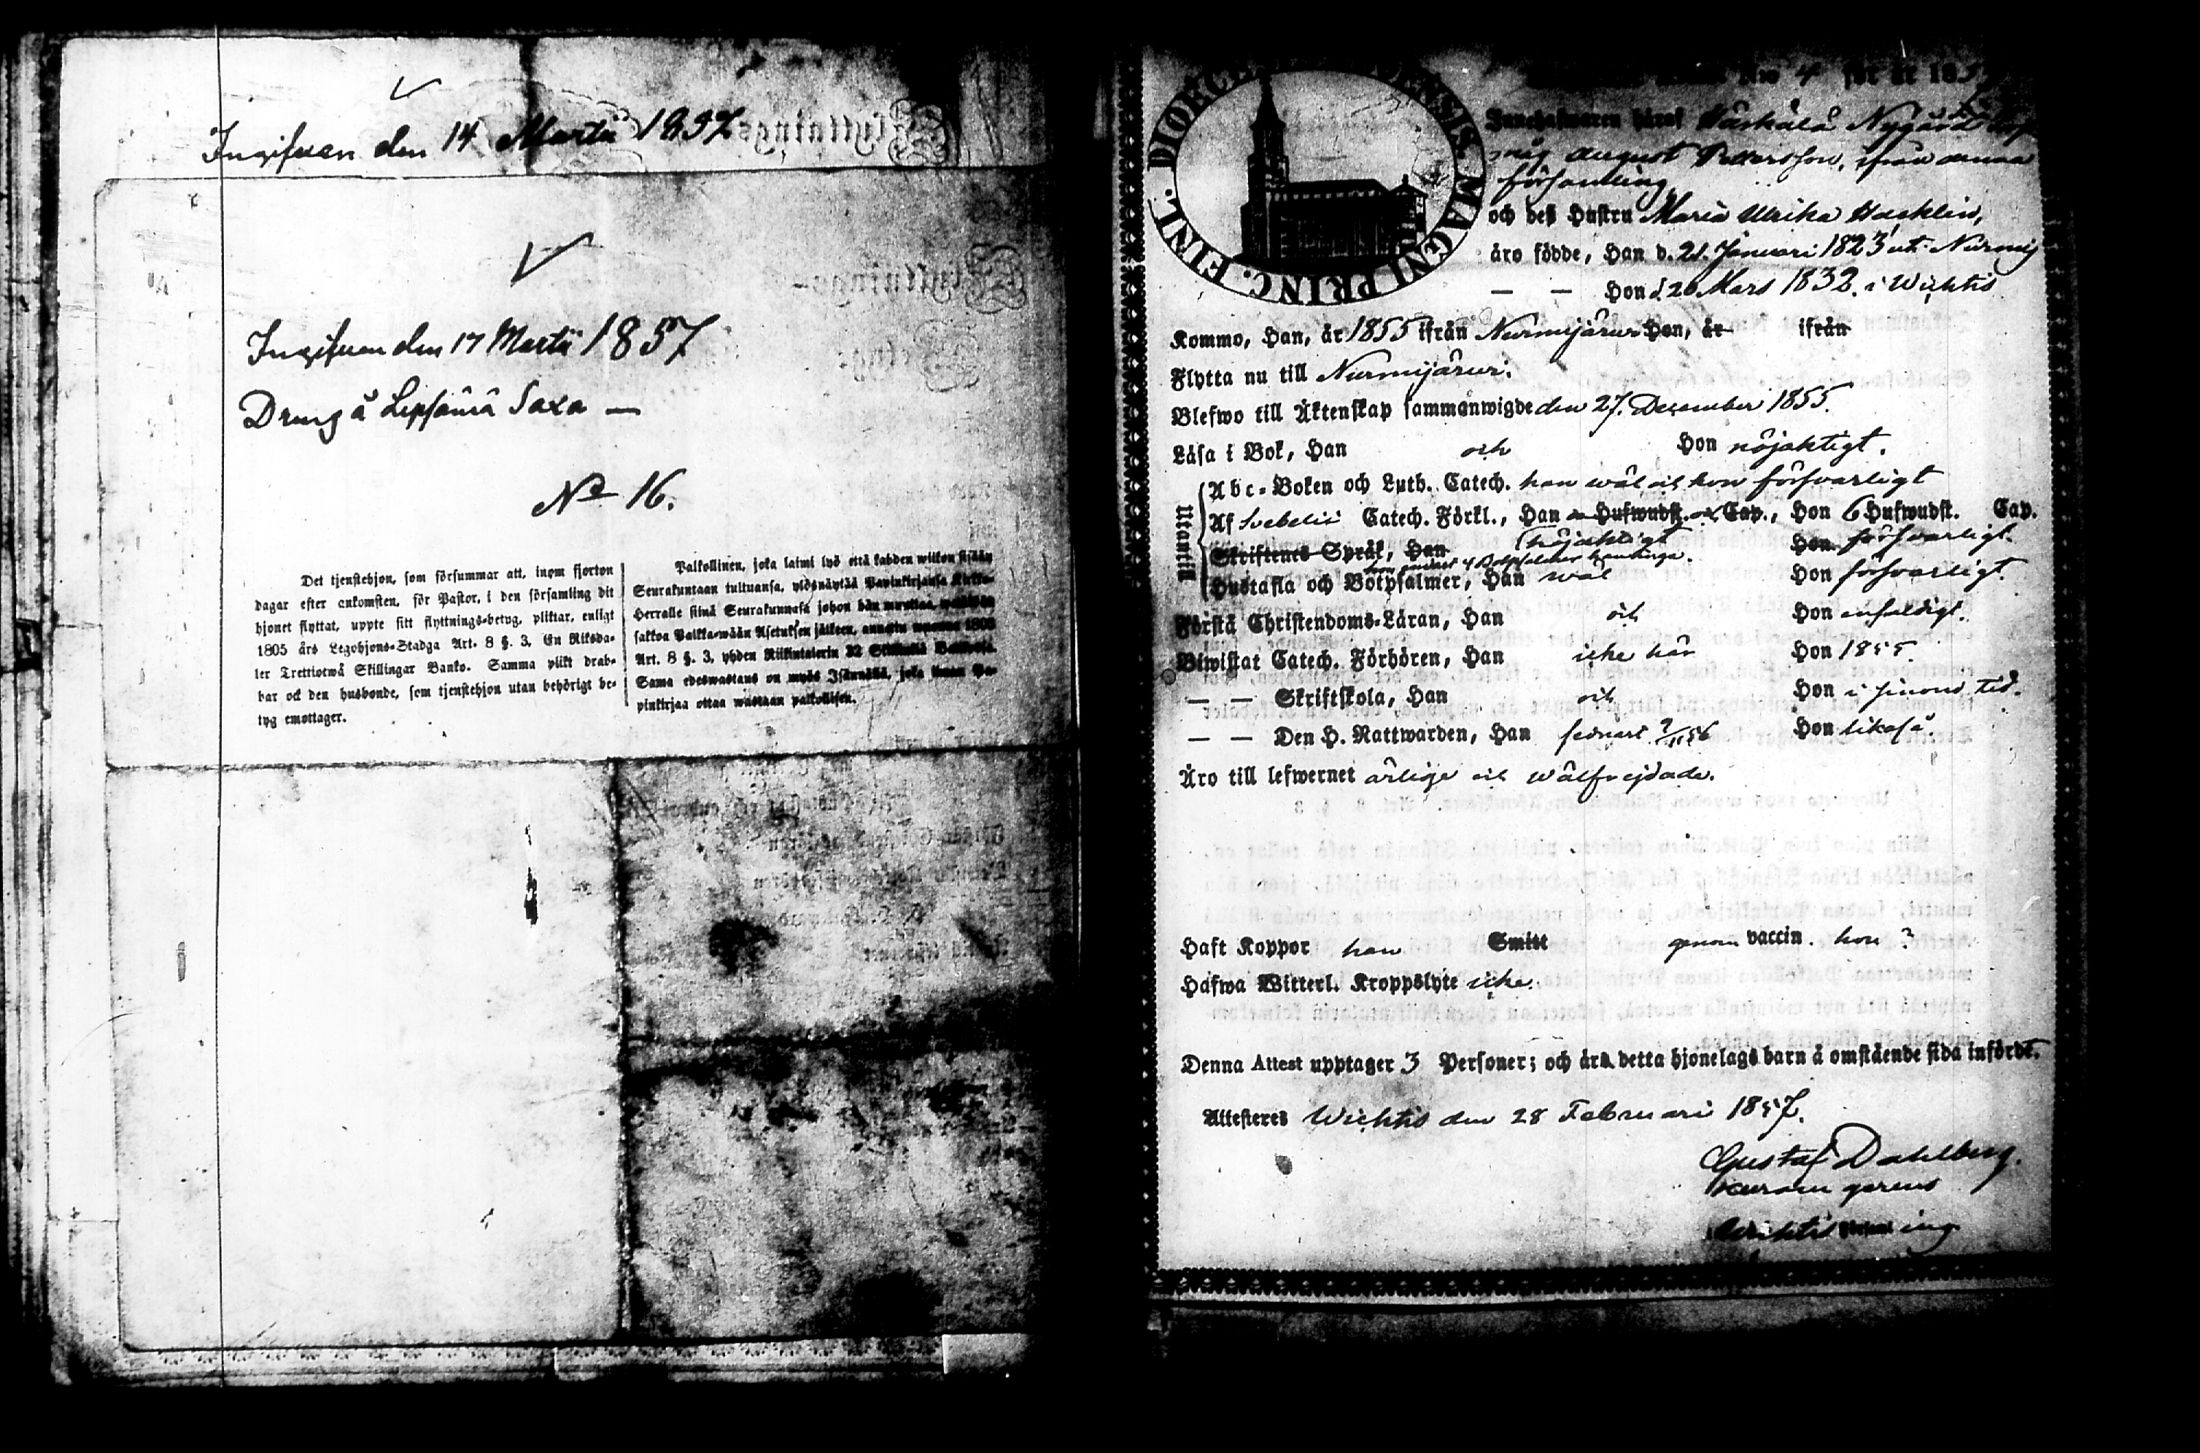 Ingifven den 14 Martii 1857
Ingifven den 17 Martii 1857
Dräng å Lepsämä Saxa —
No 16.
Det tjenstehjon, som försummar att, inom fjorton
dagar efter ankomsten, för Pastor, i den församling dit
hjonet flyttat, uppte sitt flyttnings-betyg, pliktar, enligt
1805 års Legohjons-Stadga Art. 8 §. 3. En Riksda-
ler Trettiotwå Skillingar Banko. Samma plikt drab-
bar ock den husbonde, som tjenstehjon utan behörigt be-
tyg emottager.
Palkollinen, joka laimi lyö että kahden wiikon sisään
Seurakuntaan tultuansa, ylösnäyttää Papinkirjansa Kirkko-
Herralle siinä Seurakunnasa johon hän muuttaa,
sakkoa Palkka-wään Asetuksen jälkeen, annettu wuonna 1805
Art. 8 §. 3, yhden Riikintalerin 32 Skillinkiä Bankosa.
Sama edeswastaus on myös Isännällä, joka ilman Pa-
pinkirjaa ottaa wastaan palkollisen.
DIOECES. FINL. MAGNI PRINC.
No 4 för år 185
Innehafwaren häraf Härkälä Nygård
August Pettersson, ifrån denna
församling
och deß Hustru Maria Ulrika Hacklin,
äro födde, Han d. 21. Januari 1823 uti Nurmij
— — Hon d. 26 Mars 1832. i Wichtis
Kommo, Han, år 1855 ifrån Nurmijärvi Hon, år ifrån
Flytta nu till Nurmijärvi.
Blefwo till Äktenskap sammanwigde den 27. December 1855.
Läsa i Bok, Han och Hon nöjaktigt.
Utantill
Abc-Boken och Luth. Catech. han wäl och hon försvarligt
Af Svebelii Catech. Förkl., Han Hufwudst. Cap., Hon 6 Hufwudst. Cap.
Skriftenes Språk, Han nöjaktigt Hon försvarligt.
Hustafla och Botpsalmer, Han wäl Hon försvarligt.
Förstå Christendoms-Läran, Han och Hon enfaldigt.
Biwistat Catech. Förhören, Han icke här Hon 1855.
— — Skriftskola, Han och Hon i sinom tid.
— — Den H. Nattwarden, Han sednast Hon likaså.
Äro till lefwernet ärlige och wälfrejdade.
Haft Koppor han Smitt genom vaccin. hon ?
Hafwa Witterl. Kroppslyte icke.
Denna Attest upptager 3 Personer; och äro detta hjonelags barn å omstående sida införde.
Attesteres Wichtis den 28 Februari 1857.
Gustaf Dahlberg.
Curam gerens
Wichtis